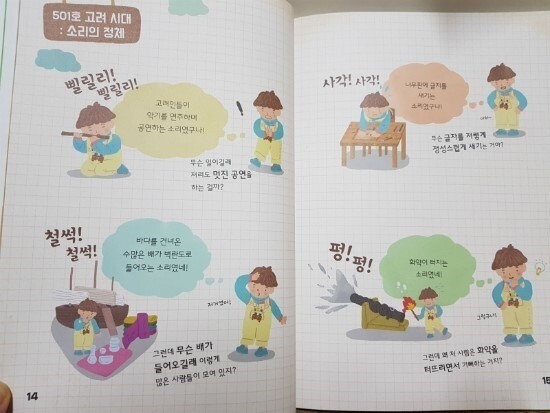 501호 고려 시대
: 소리의 정체
삘릴리!
삘릴리!
고려인들이
악기를 연주하며
공연하는 소리였구나!
!
무슨 일이길래
저리도 멋진 공연을
하는 걸까?
철썩!
철썩!
바다를 건너온
수많은 배가 벽란도로
들어오는 소리였네!
그런데 무슨 배가
들어오길래 이렇게
많은 사람들이 모여 있지?
14
사각! 사각!
나무판에 글자를
새기는
소리였구나!
무슨 글자를 저렇게
정성스럽게 새기는 거야?
펑! 펑!
화약이 터지는
소리였네!
그런데 왜 저 사람은 화약을
터뜨리면서 기뻐하는 거지?
15